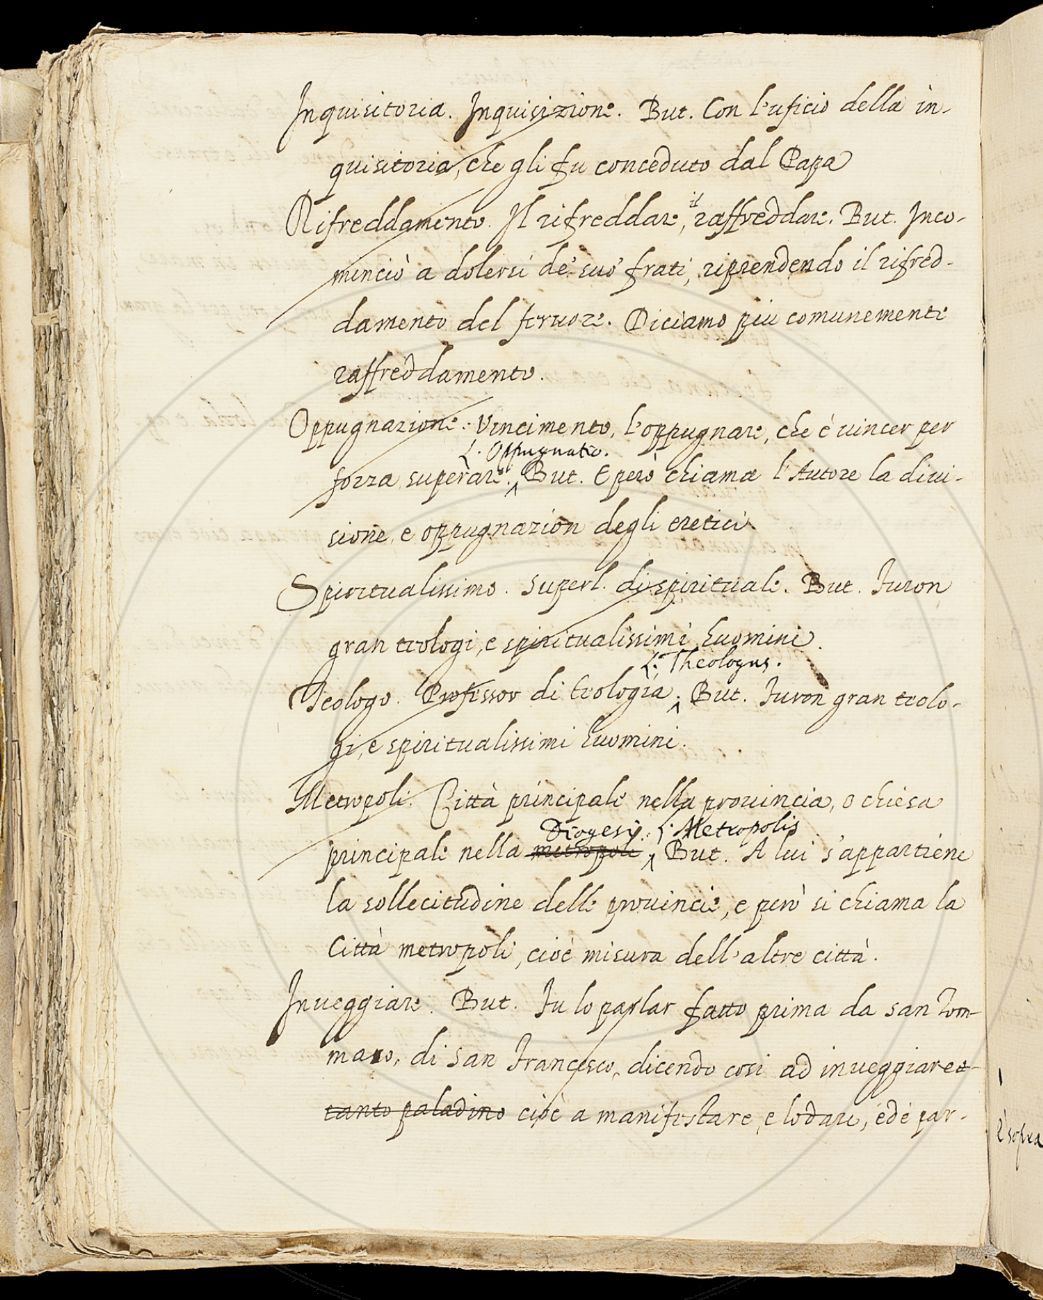 Inquisitoria. Inquisizione. But. Con l'uficio della in-
quisitoria, che gli fu conceduto dal Papa
Rifreddamento. Il rifreddare, il raffreddare. But. Inco-
minciò a dolersi de' suo' frati, riprendendo il rifred-
damento del feruore. Diciamo piu comunemente
raffreddamento.
Oppugnazione. Vincimento, l'oppugnare, che è uincer per
L. Oppugnatio.
forza, superare. But. E però chiama l'Autore la diui-
sione, e oppugnazion degli eretici
Spiritualissimo. Superl. di spirituale. But. Furon
gran teologi, e spiritualissimi huomini.
L. Theologus.
Teologo. Professor di teologia. But. Furon gran teolo-
gi, e spiritualissimi huomini.
Metropoli. Città principale nella prouincia, o chiesa
Diogesi. L. Metropolis
principale nella metropoli But. A lui s'appartiene
la sollecitudine delle prouincie, e però si chiama la
Città metropoli, cioè misura dell'altre città.
Inueggiare. But. Fu lo parlar fatto prima da san Tom-
maso, di San Francesco, dicendo cosi ad inueggiare
tanto paladino cioè a manifestare, e lodare, ed è par-